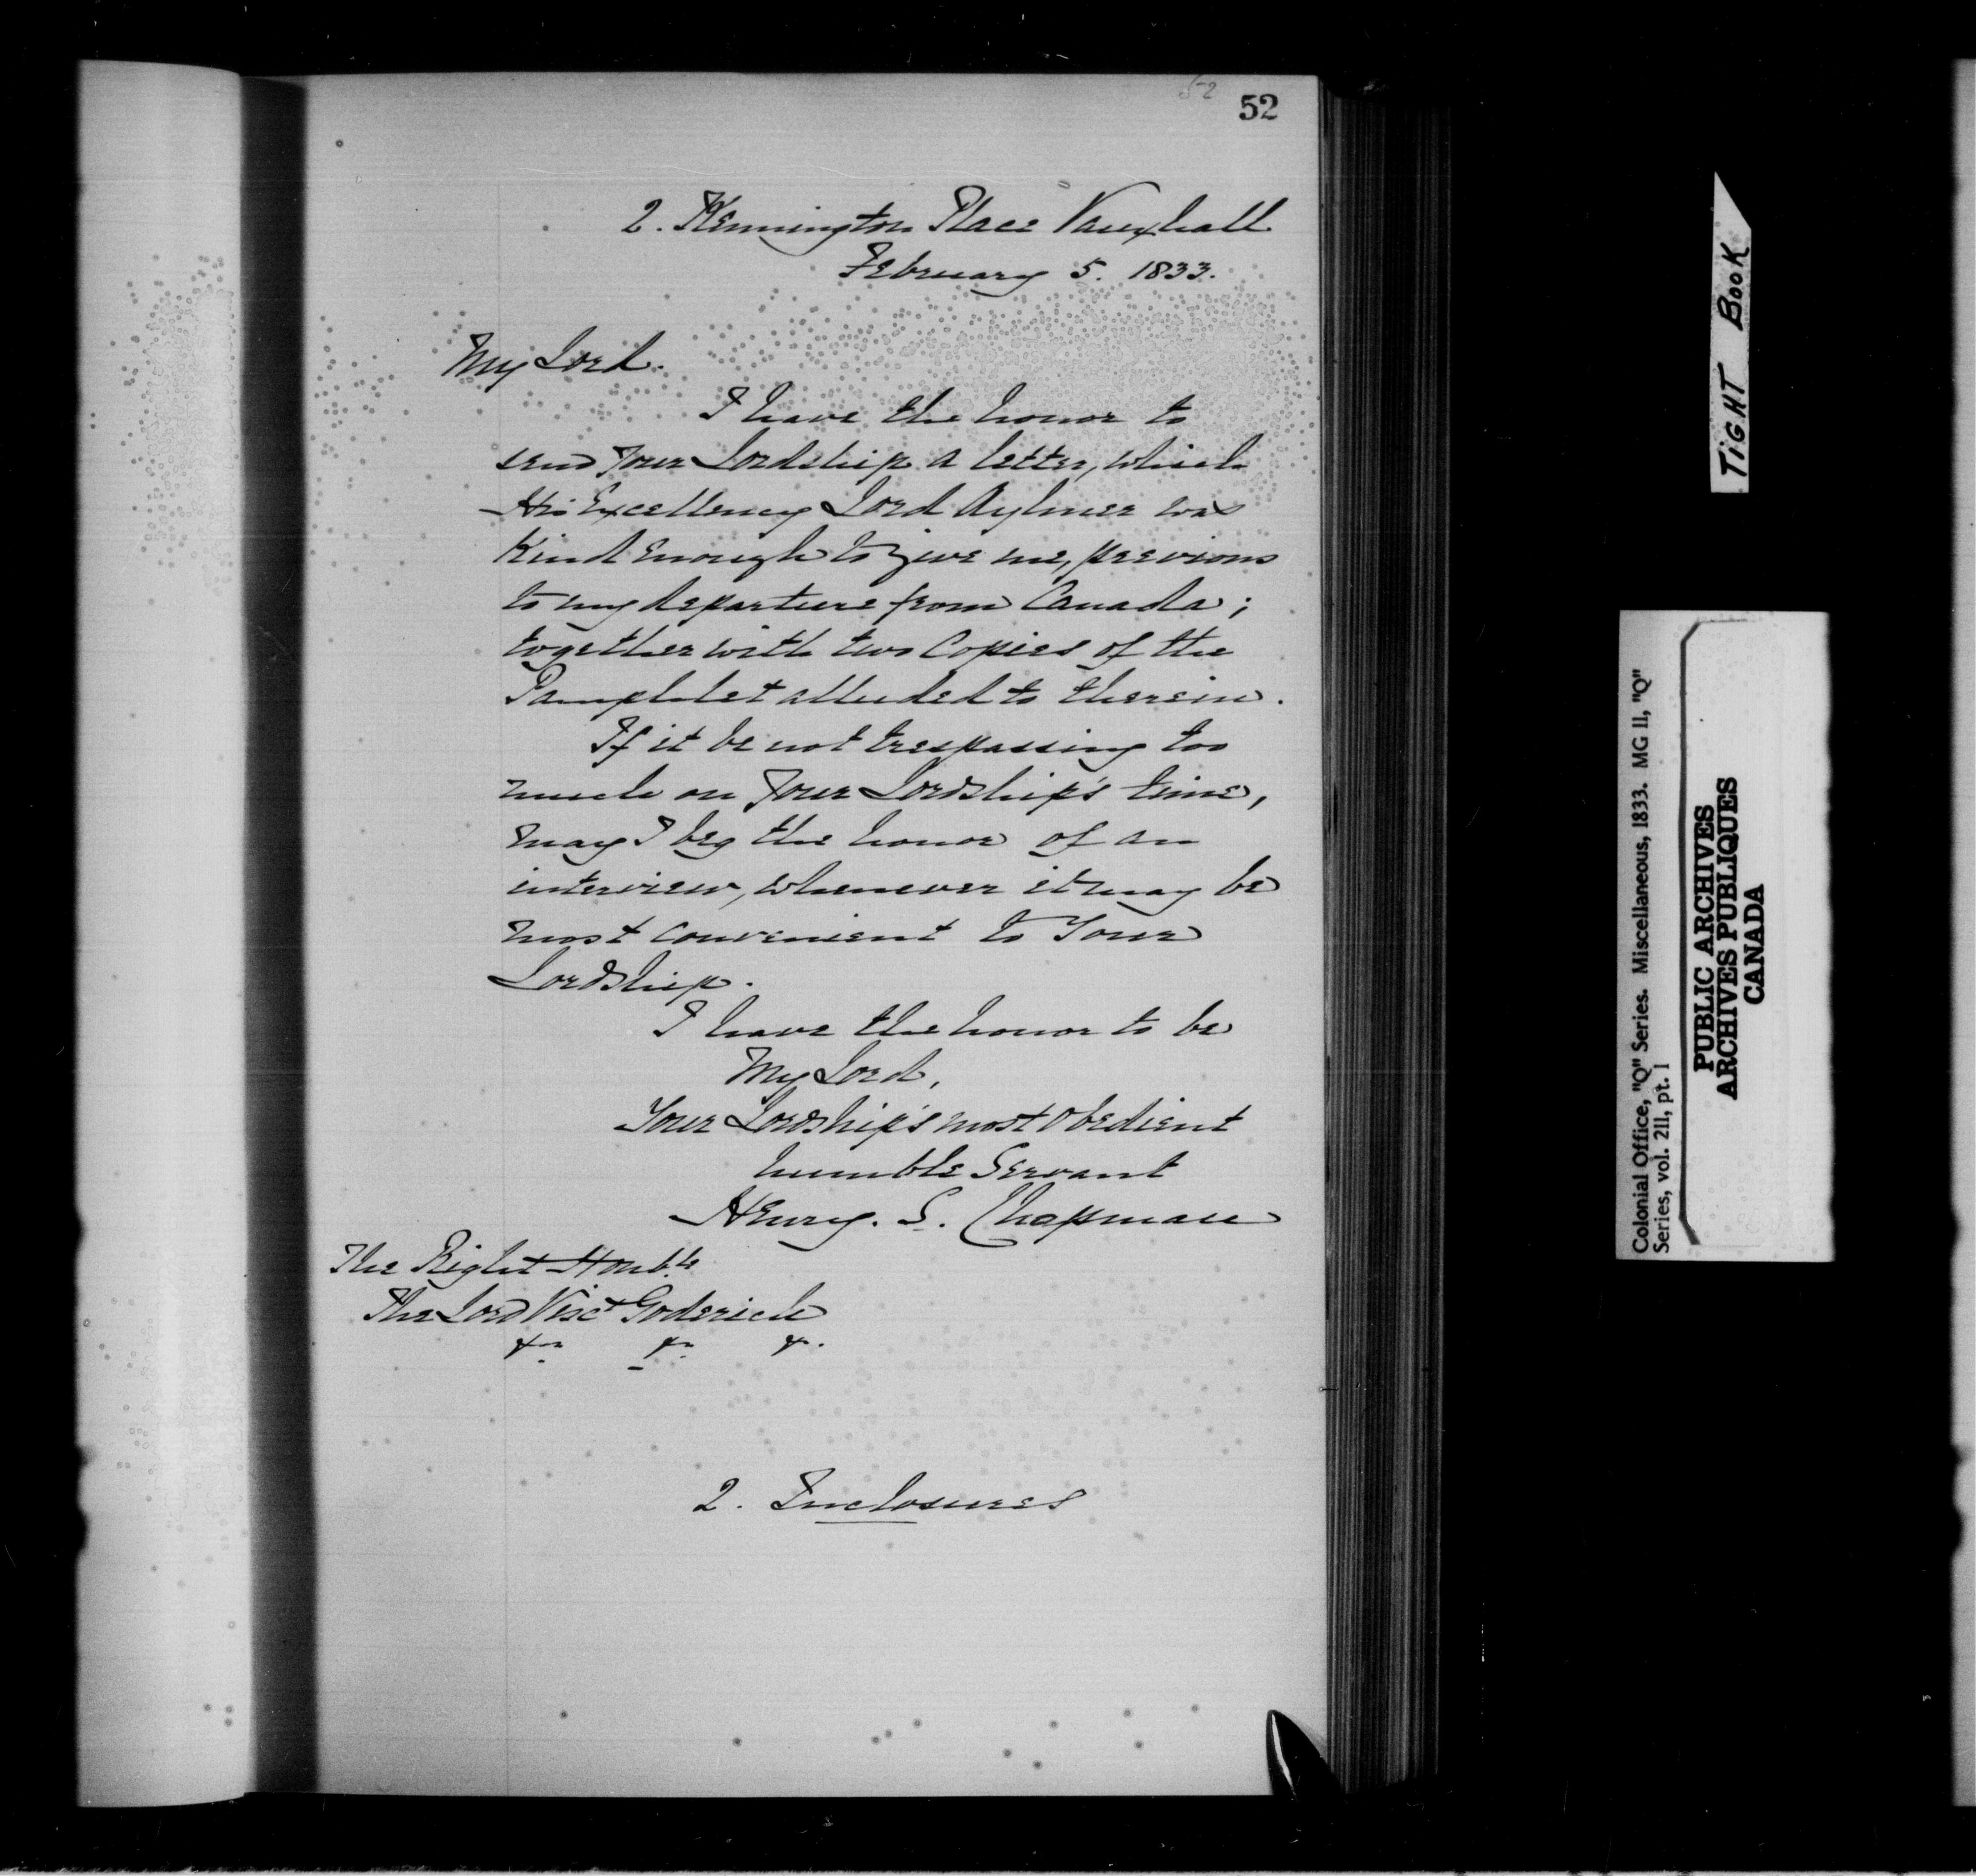 52
52
2. Kennington Place Vauxhall
February 5. 1833.
My Lord.
I have the honor to
send Your Lordship a letter, which
His Excellency Lord Aylmer was
Kind enough to give me, previous
to my departure from Canada;
together with two Copies of the
Pamphlet alluded to therein.
If it be not trespassing too
much on Your Lordship's time,
may I beg the honor of an
interview, whenever it may be
most convenient to Your
Lordship.
I have the honor to be
My Lord,
Your Lordship's most obedient
humble Servant
Henry. S. Chapman
The Right Honble
The Lord Visct Goderich
&c &c &c.
2. Inclosures
TIGHT BOOK
Colonial Office, "Q" Series. Miscellaneous, 1833. MG 11, "Q"
Series, vol. 211, pt. 1
PUBLIC ARCHIVES
ARCHIVES PUBLIQUES
CANADA